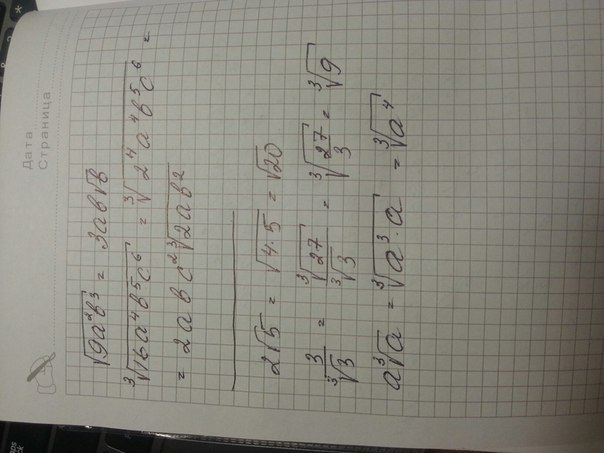 Дата
Страница
√9a²b³ = 3ab√b
∛16a⁴b⁵c⁶ = ∛2⁴a⁴b⁵c⁶ =
= 2abc²∛2ab²
2√5 = √4·5 = √20
3/∛3 = ∛27/∛3 = ∛27/3 = ∛9
a∛a = ∛a³·a = ∛a⁴